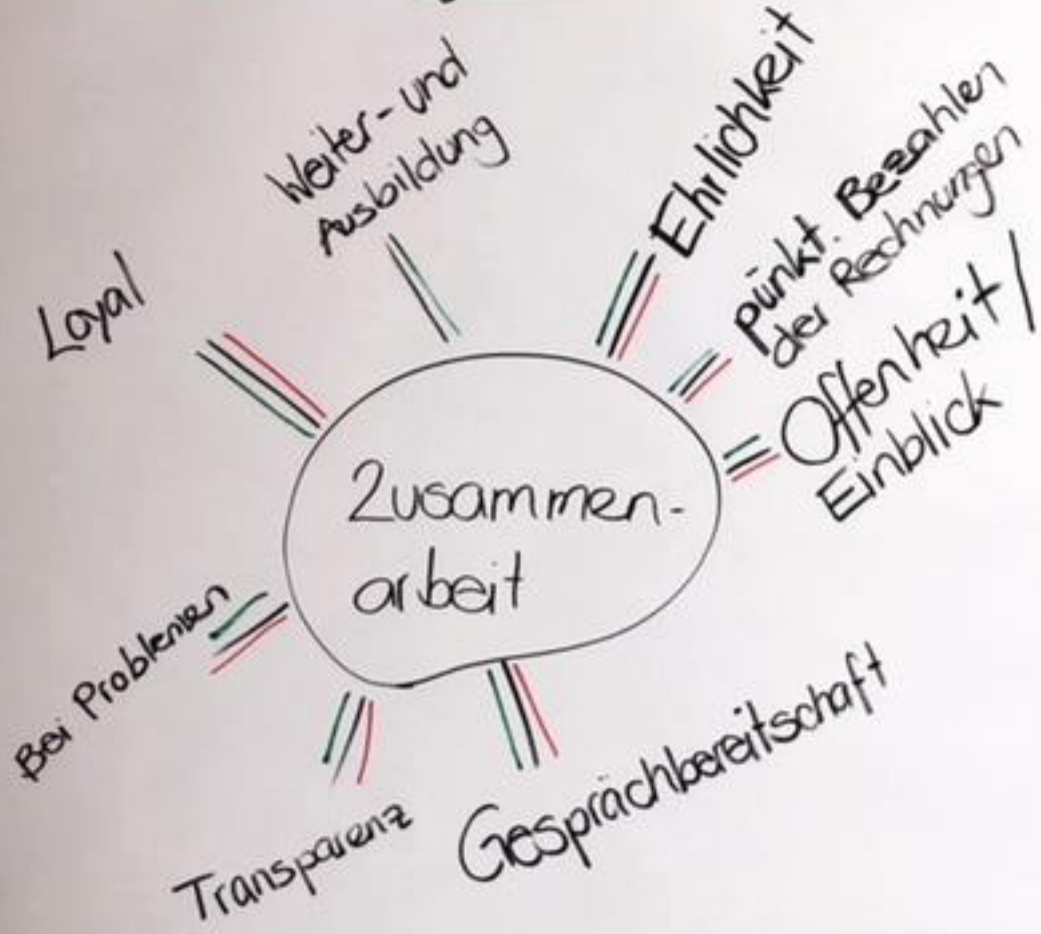 Zusammen-
arbeit
Loyal
Weiter- und
Ausbildung
Ehrlichkeit
pünkt. Bezahlen
der Rechnungen
Offenheit /
Einblick
Gesprächbereitschaft
Transparenz
Bei Problemen